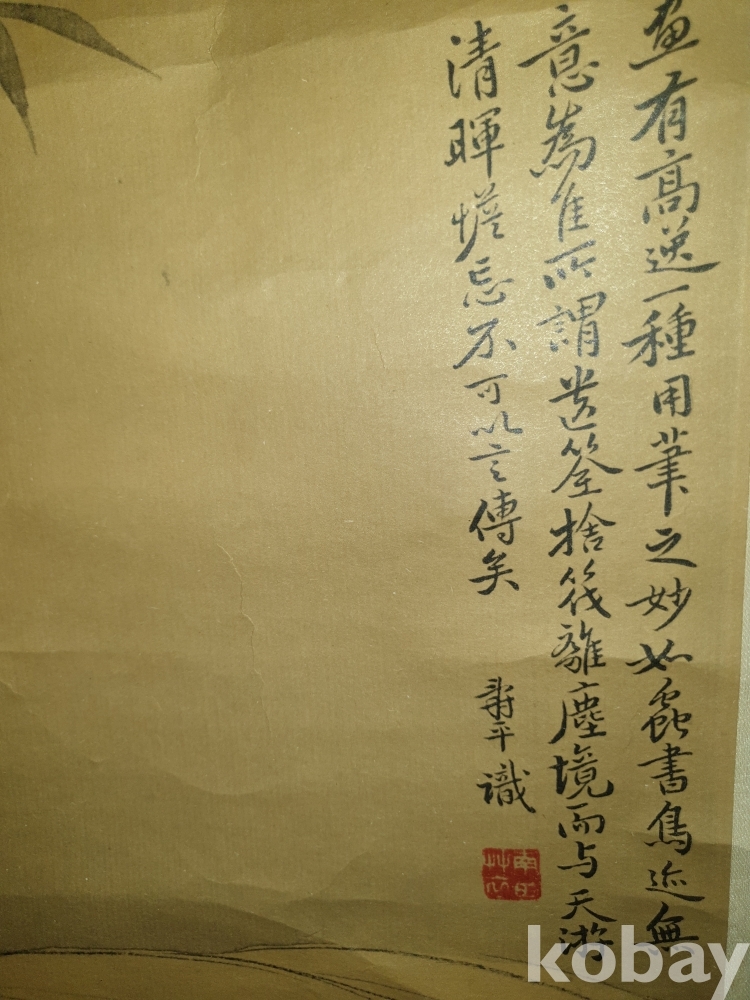 畫有高逸一種用筆之妙如蟲書鳥迹無
意為佳所謂遺筌捨筏離塵境而与天游
清暉憺忘不可以言傳矣
壽平識
南田
艸衣
kobay